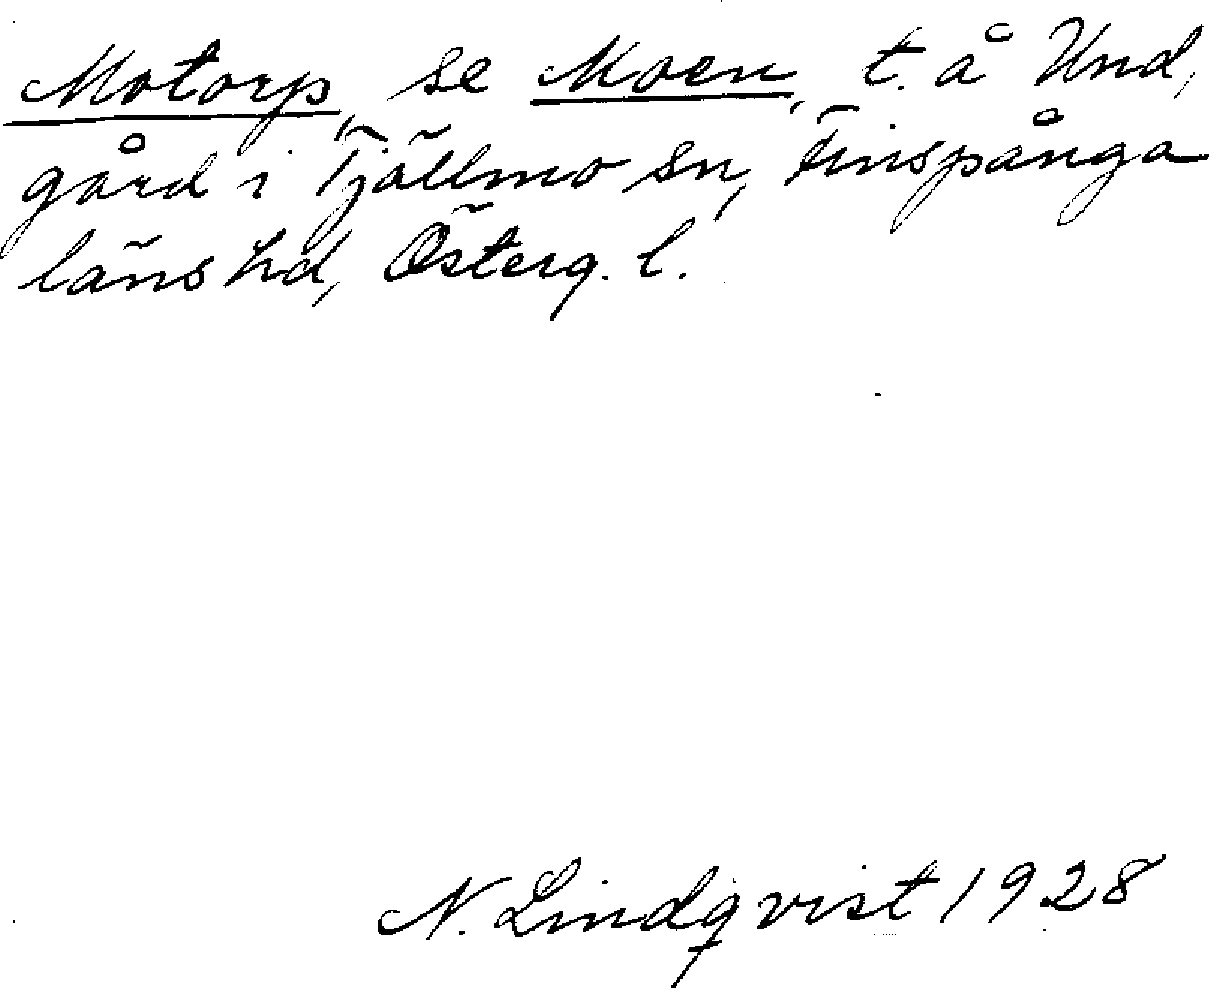 Motorp, se Moen, t. å Und,
gård i Tjällmo sn, Finspånga
läns hd, Österg. l.
N. Lindqvist 1928